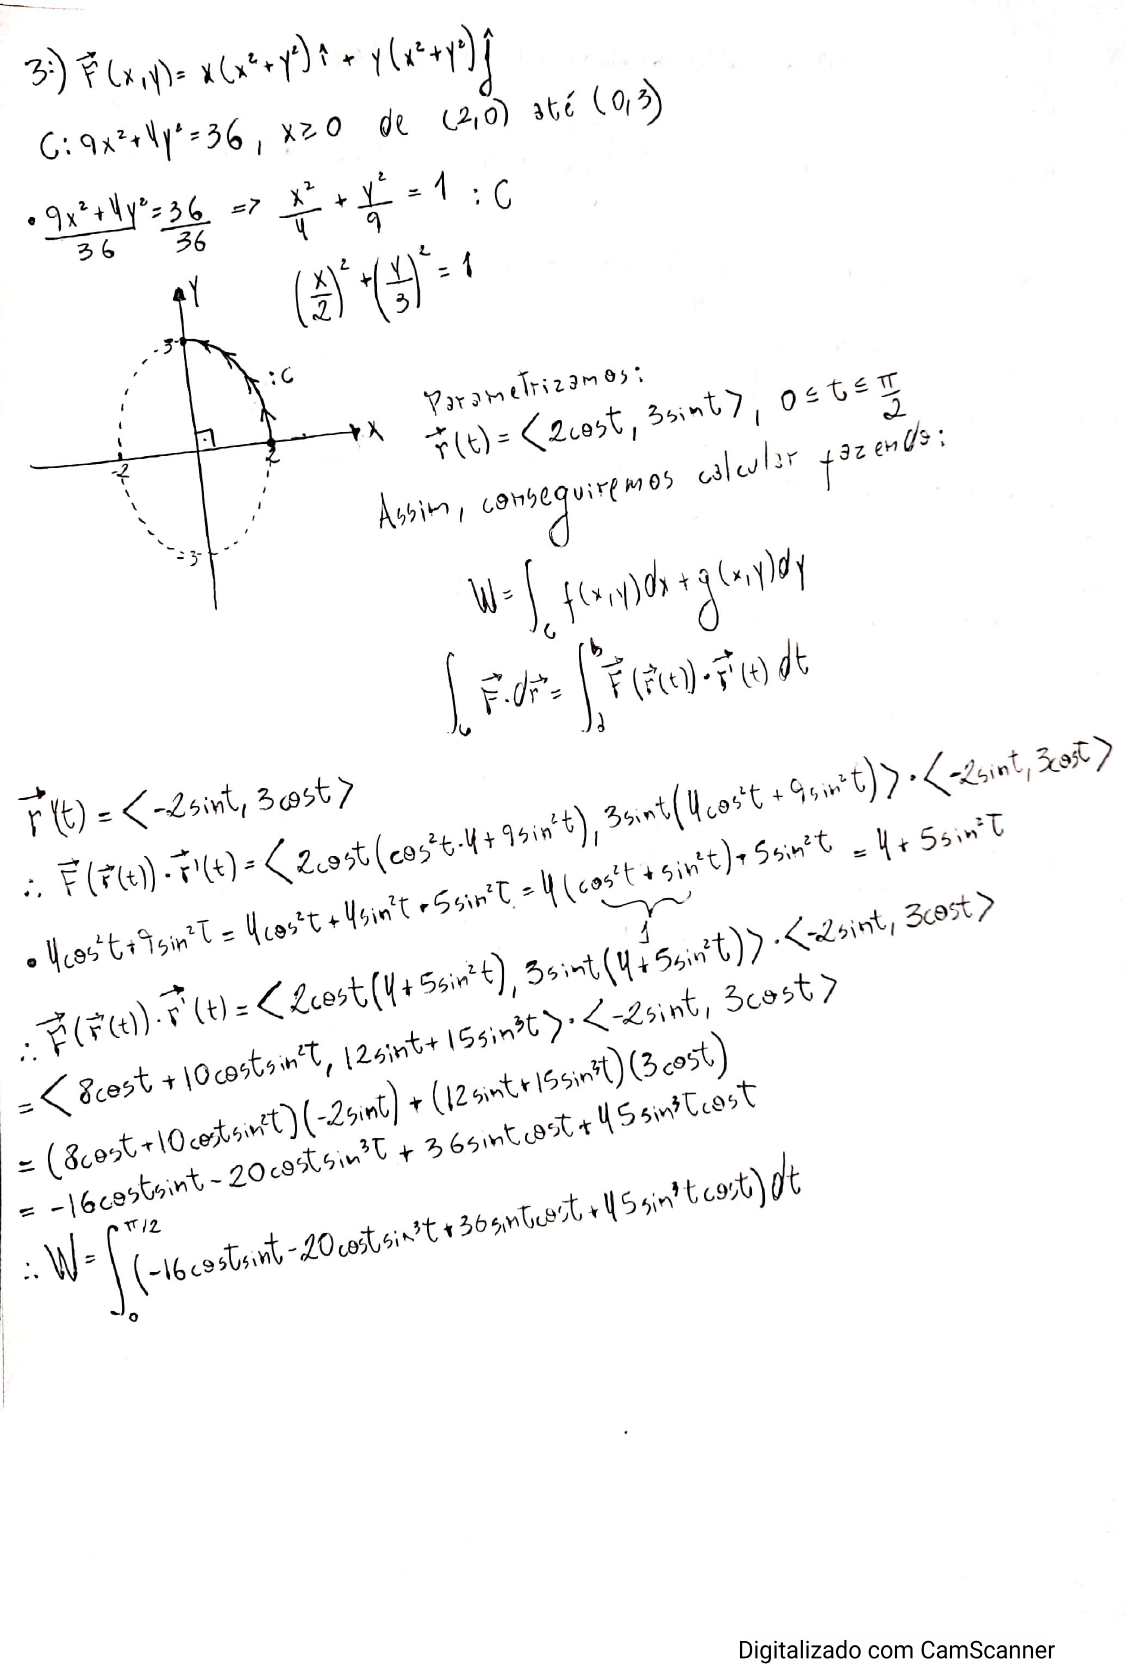 3:) F⃗(x,y)= x(x²+y²)î + y(x²+y²)ĵ
C: 9x²+4y²=36, x≥0 de (2,0) até (0,3)
• 9x²+4y²/36 = 36/36 => x²/4 + y²/9 = 1 : C
(x/2)² + (y/3)² = 1
Y
3
:C
X
-2
2
-3
Parametrizamos:
r⃗(t) = <2cost, 3sint>, 0≤t≤π/2
Assim, conseguiremos calcular fazendo:
W = ∫_C f(x,y)dx + g(x,y)dy
∫_C F⃗·dr⃗ = ∫_a^b F⃗(r⃗(t))·r⃗'(t) dt
r⃗'(t) = <-2sint, 3cost>
∴ F⃗(r⃗(t))·r⃗'(t) = <2cost(cos²t·4+9sin²t), 3sint(4cos²t+9sin²t)>·<-2sint, 3cost>
• 4cos²t+9sin²t = 4cos²t+4sin²t+5sin²t = 4(cos²t+sin²t)+5sin²t = 4+5sin²t
1
∴ F⃗(r⃗(t))·r⃗'(t) = <2cost(4+5sin²t), 3sint(4+5sin²t)>·<-2sint, 3cost>
= <8cost+10costsin²t, 12sint+15sin³t>·<-2sint, 3cost>
= (8cost+10costsin²t)(-2sint)+(12sint+15sin³t)(3cost)
= -16costsint-20costsin³t+36sintcost+45sin³tcost
∴ W = ∫_0^π/2 (-16costsint-20costsin³t+36sintcost+45sin³tcost)dt
Digitalizado com CamScanner